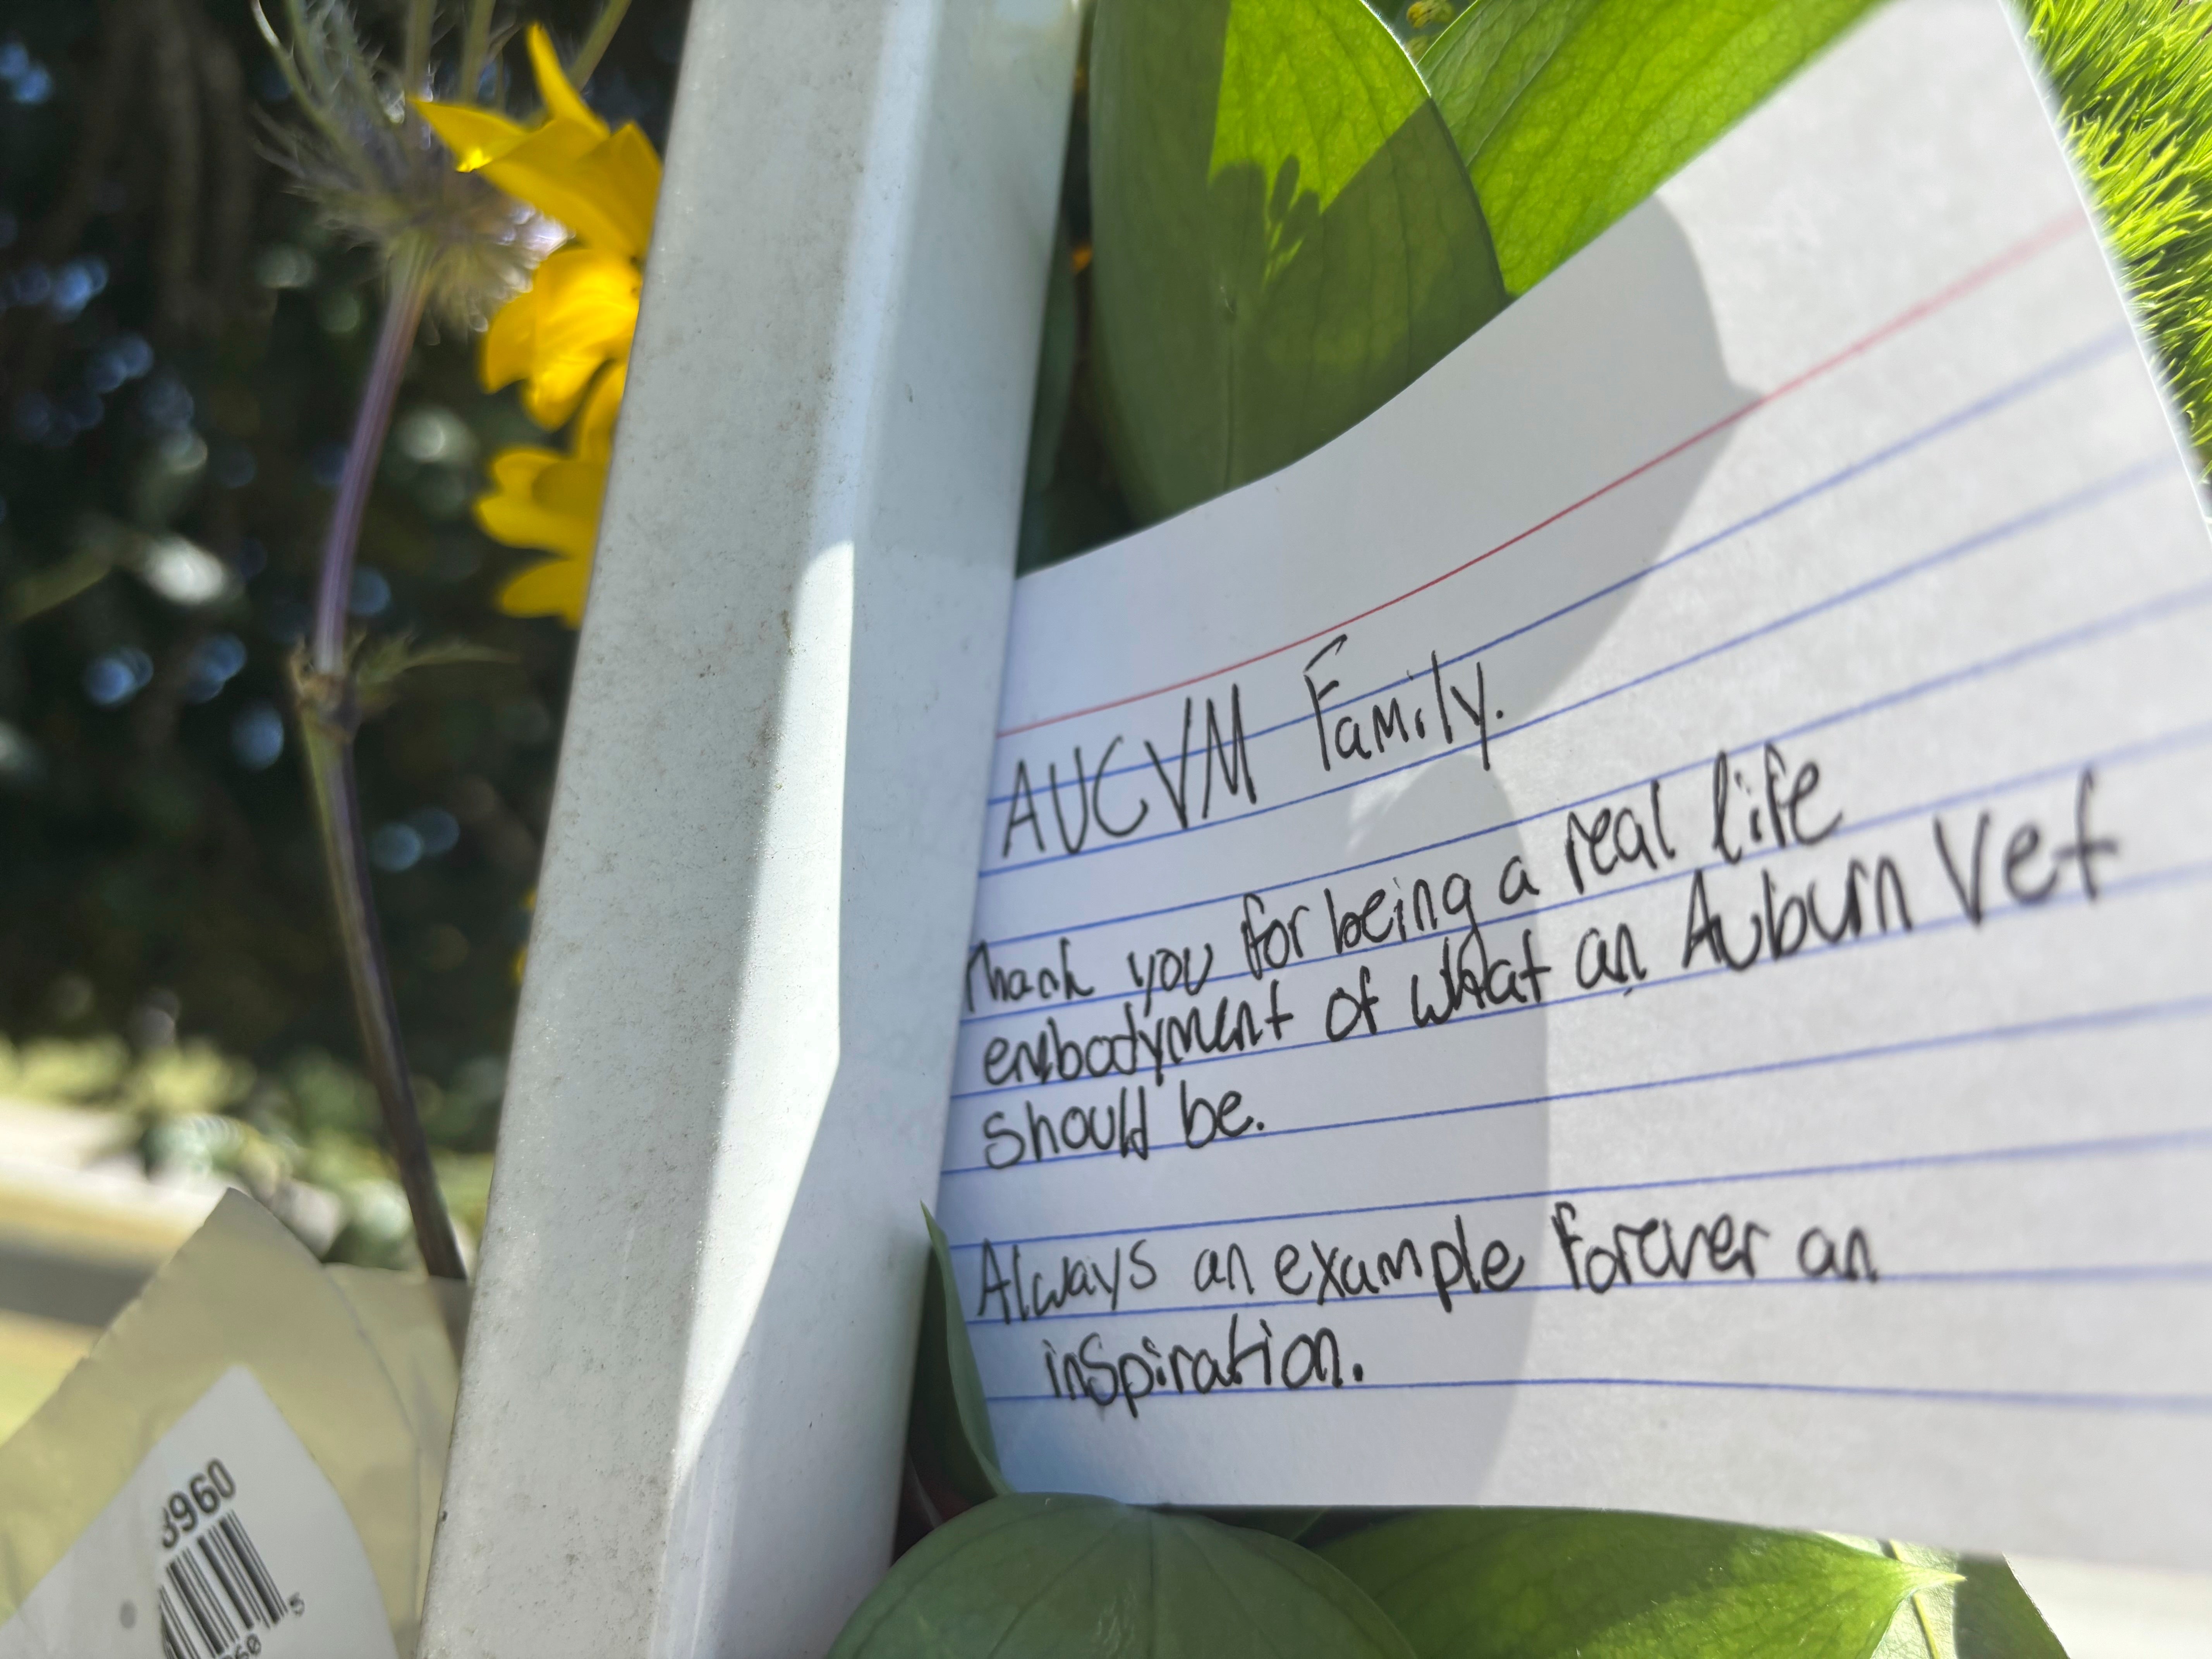 AUCVM Family.
Thank you for being a real life
embodyment of what an Auburn Vet
should be.
Always an example forever an
inspiration.
3960
5